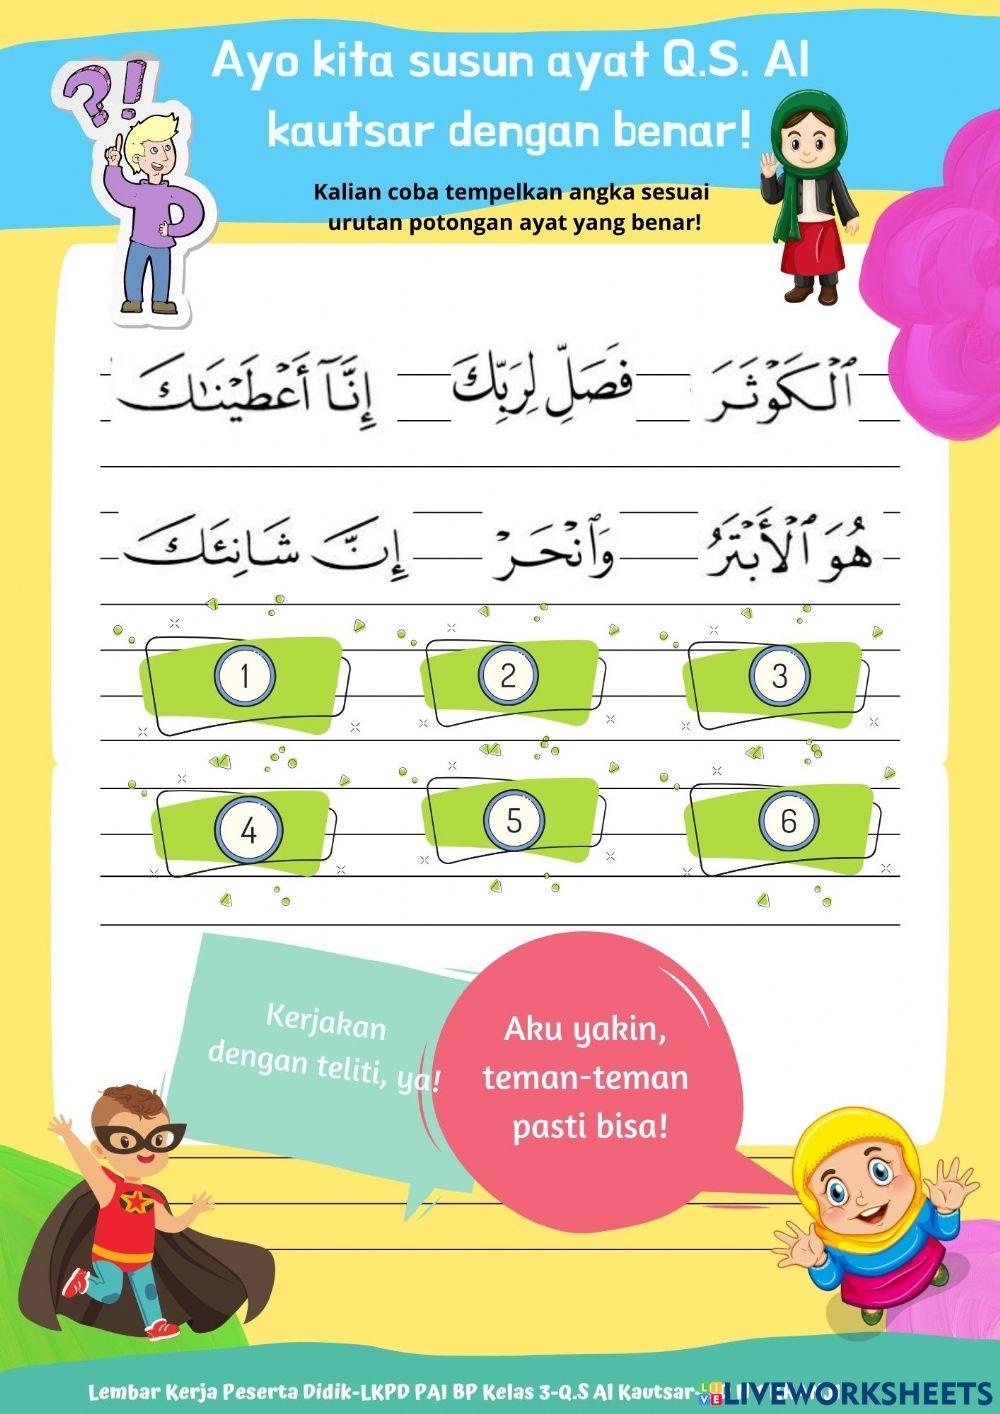 ?!
Ayo kita susun ayat Q.S. Al
kautsar dengan benar!
Kalian coba tempelkan angka sesuai
urutan potongan ayat yang benar!
ٱلْكَوْثَرَ فَصَلِّ لِرَبِّكَ إِنَّآ أَعْطَيْنَـٰكَ
هُوَ ٱلْأَبْتَرُ وَٱنْحَرْ إِنَّ شَانِئَكَ
1 2 3
4 5 6
Kerjakan
dengan teliti, ya!
Aku yakin,
teman-teman
pasti bisa!
Lembar Kerja Peserta Didik-LKPD PAI BP Kelas 3-Q.S Al Kautsar-
LIVEWORKSHEETS